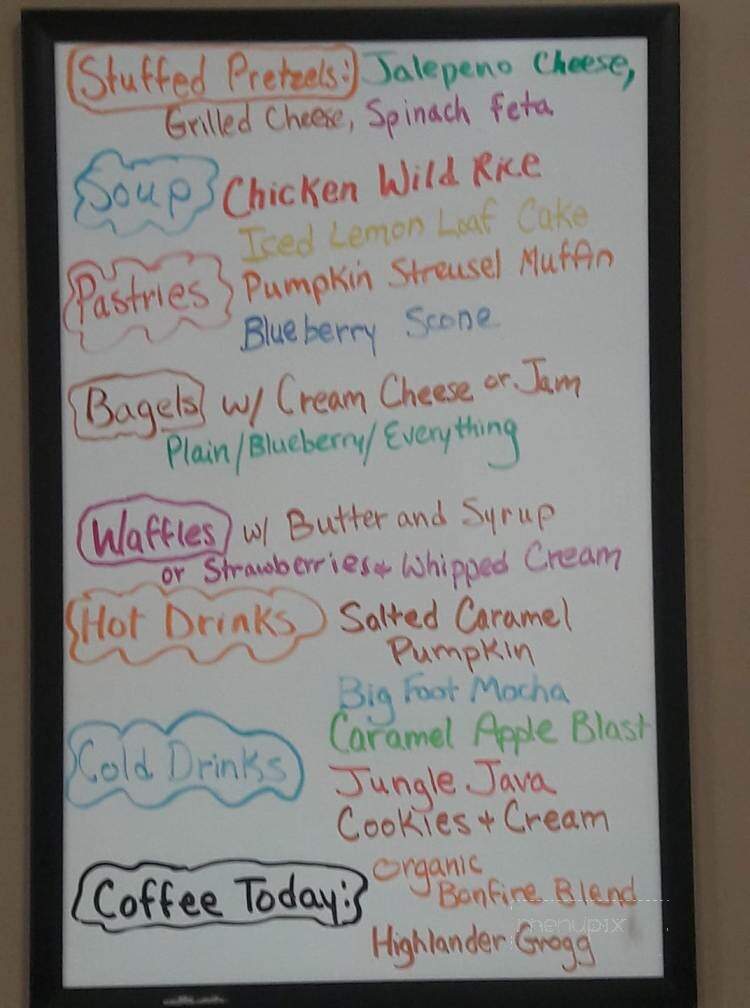 Stuffed Pretzels: Jalepeno Cheese,
Grilled Cheese, Spinach Feta
Soup Chicken Wild Rice
Iced Lemon Loaf Cake
Pastries Pumpkin Streusel Muffin
Blueberry Scone
Bagels w/ Cream Cheese or Jam
Plain/Blueberry/Everything
Waffles w/ Butter and Syrup
or Strawberries + Whipped Cream
Hot Drinks Salted Caramel
Pumpkin
Big Foot Mocha
Caramel Apple Blast
Cold Drinks Jungle Java
Cookies + Cream
Organic
Coffee Today: Bonfire Blend
menupix
Highlander Grogg